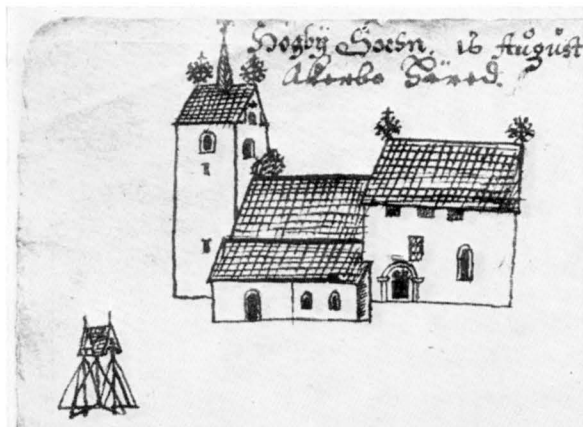 Högbÿ Sochn. 18 August
Åkerbo Häred.